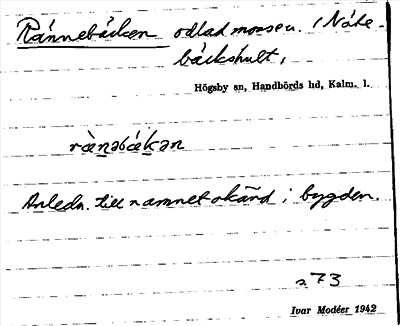 Rännebäcken odlad mosse u. (Näke-
bäckshult,
Högsby sn, Handbörds hd, Kalm. l.
rä̀nəbäkən
Anledn. till namnet okänd i bygden.
s. 73
Ivar Modéer 1942